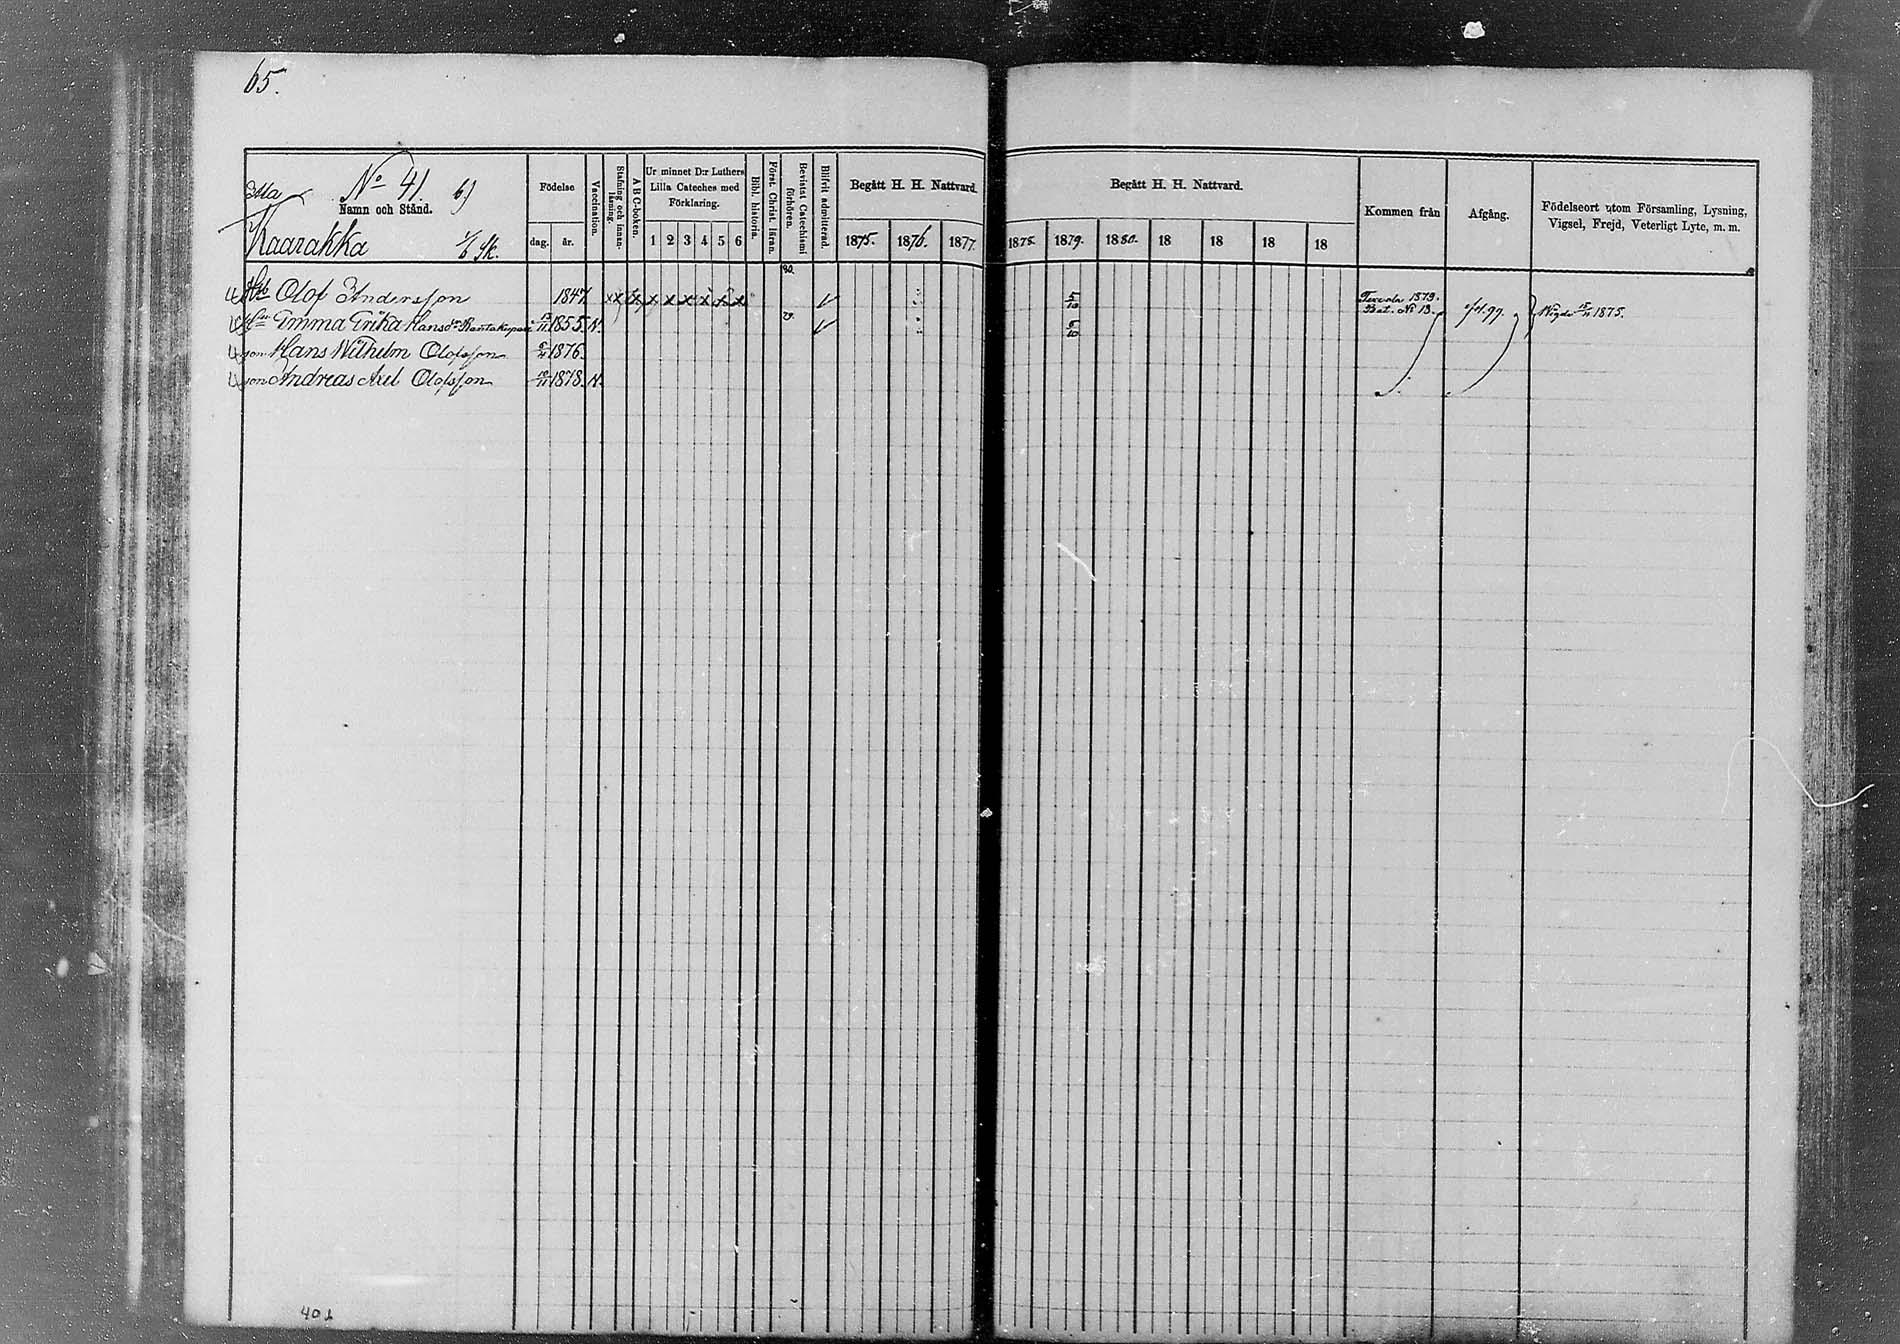 65.
No 41. b)
Namn och Stånd.
Kaarakka
Födelse
dag. år.
Vaccination.
Stafning och innan-
läsning.
A B C-boken.
Ur minnet D:r Luthers
Lilla Cateches med
Förklaring.
1 2 3 4 5 6
Bibl. historia.
Först. Christ. läran.
Bevistat Catechismi
förhören.
Blifvit admitterad.
Begått H. H. Nattvard.
1875. 1876. 1877.
Begått H. H. Nattvard.
1878. 1879. 1880. 18 18 18 18
Kommen från
Afgång.
Födelseort utom Församling, Lysning,
Vigsel, Frejd, Veterligt Lyte, m. m.
Olof Andersson 1847. x x x x x x x x x 5/10 Tervola 1879. Bet. No 13.
Emma Erika Hansdr 1855. V. 5/10 1875.
son Hans Wilhelm Olofsson 1876.
son Andreas Axel Olofsson 1878. V.
401